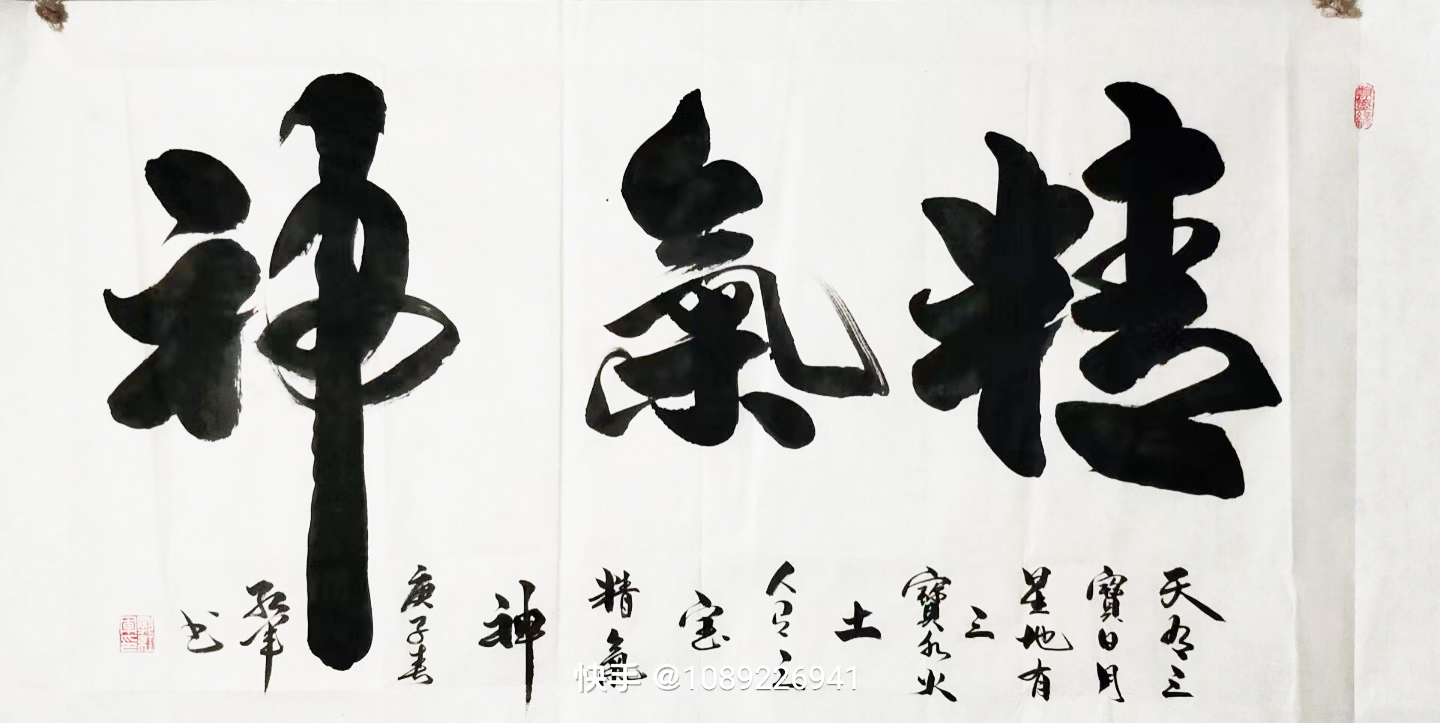 精氣神
天有三
寶日月
星地有
三
寶水火
土
人有三
宝
精氣
神
庚子春
书
快手 @1089226941